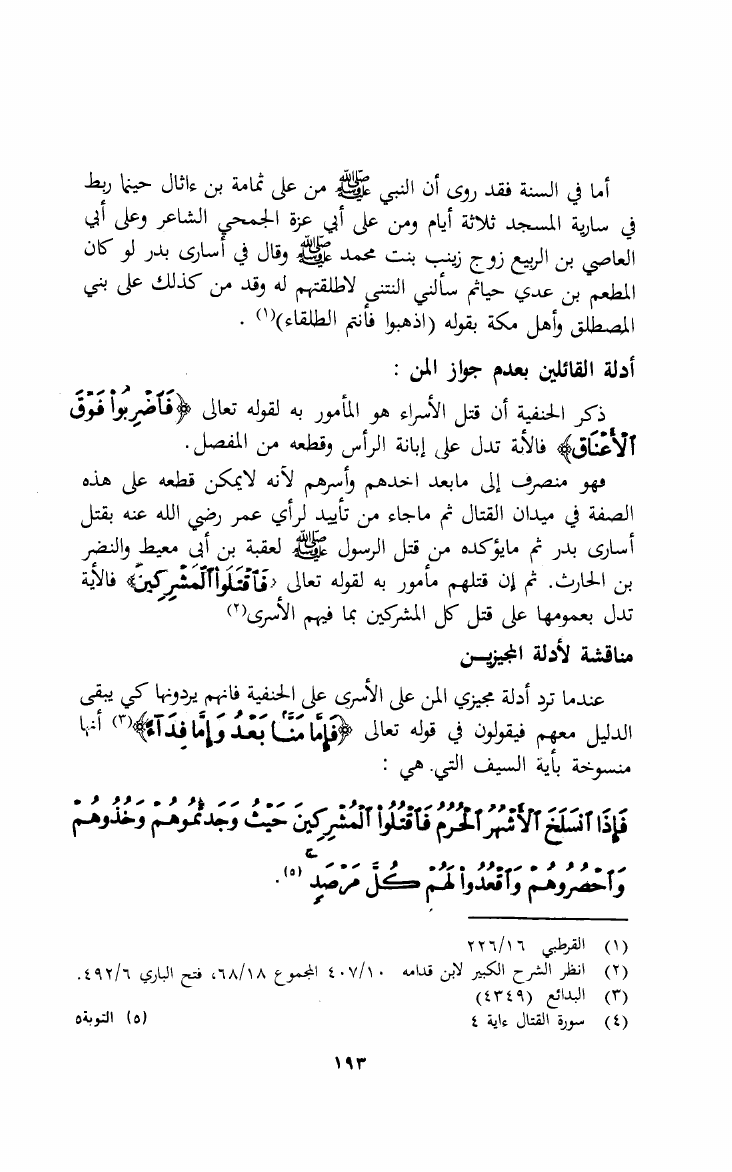 أما في السنة فقد روى أن النبي ﷺ من على ثمامة بن ءاثال حينما ربط
في سارية المسجد ثلاثة أيام ومن على أبي عزة الجمحي الشاعر وعلى أبي
العاصي بن الربيع زوج زينب بنت محمد ﷺ وقال في أسارى بدر لو كان
المطعم بن عدي حياثم سألني النتنى لاطلقتهم له وقد من كذلك على بني
المصطلق وأهل مكة بقوله (اذهبوا فأنتم الطلقاء)(١) .
أدلة القائلين بعدم جواز المن :
ذكر الحنفية أن قتل الأسراء هو المأمور به لقوله تعالى ﴿فَٱضۡرِبُواْ فَوۡقَ
ٱلۡأَعۡنَاقِ﴾ فالأية تدل على إبانة الرأس وقطعه من المفصل.
فهو منصرف إلى مابعد اخدهم وأسرهم لأنه لايمكن قطعه على هذه
الصفة في ميدان القتال ثم ماجاء من تأييد لرأي عمر رضي الله عنه بقتل
أسارى بدر ثم مايؤكده من قتل الرسول ﷺ لعقبة بن أبى معيط والنضر
بن الحارث. ثم إن قتلهم مأمور به لقوله تعالى ﴿فَٱقۡتُلُواْ ٱلۡمُشۡرِكِينَ﴾ فالأية
تدل بعمومها على قتل كل المشركين بما فيهم الأسرى(٢)
مناقشة لأدلة المجيزيـن
عندما ترد أدلة مجيزي المن على الأسرى على الحنفية فانهم يردونها كي يبقى
الدليل معهم فيقولون في قوله تعالى ﴿فَإِمَّا مَنَّۢا بَعۡدُ وَإِمَّا فِدَآءً﴾(٣) أنها
منسوخة بأية السيف التي. هي :
فَإِذَا ٱنسَلَخَ ٱلۡأَشۡهُرُ ٱلۡحُرُمُ فَٱقۡتُلُواْ ٱلۡمُشۡرِكِينَ حَيۡثُ وَجَدتُّمُوهُمۡ وَخُذُوهُمۡ
وَٱحۡصُرُوهُمۡ وَٱقۡعُدُواْ لَهُمۡ كُلَّ مَرۡصَدٍۚ (٥).
(١) القرطبي ٢٢٦/١٦
(٢) انظر الشرح الكبير لابن قدامه ٤٠٧/١٠ المجموع ٦٨/١٨، فتح الباري ٤٩٢/٦.
(٣) البدائع (٤٣٤٩)
(٤) سورة القتال ءاية ٤ (٥) التوبة٥
١٩٣